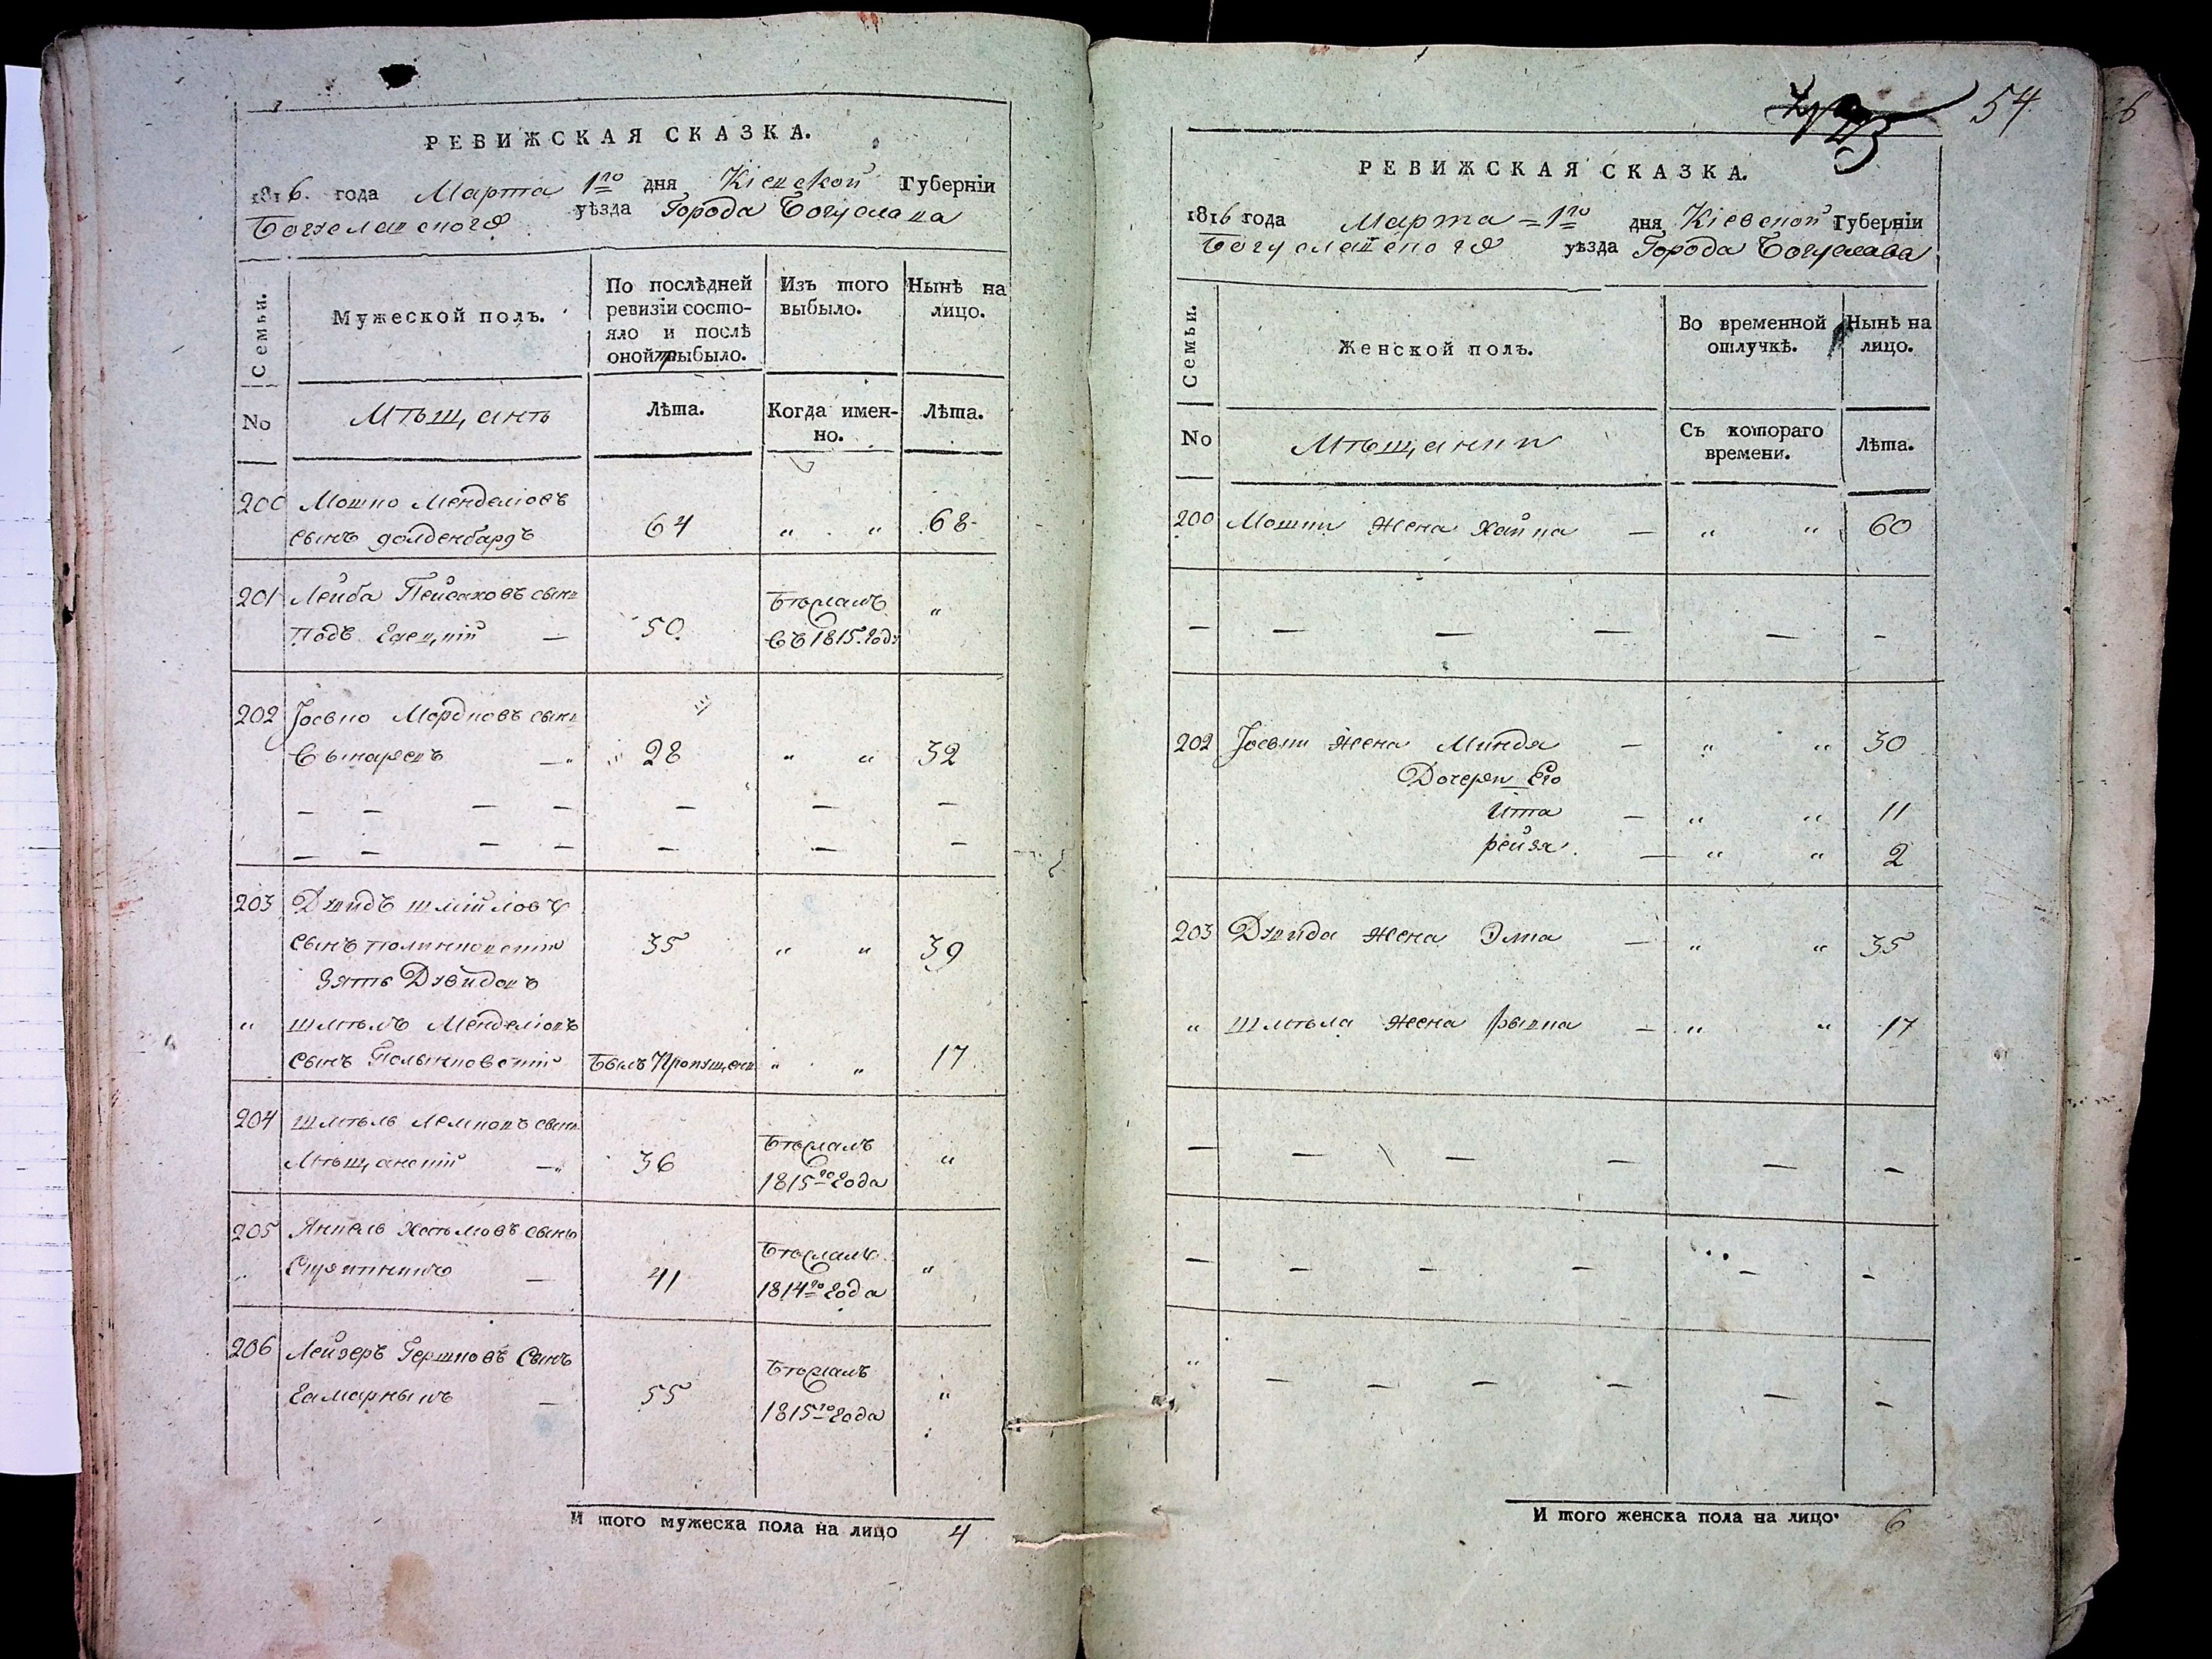 РЕВИЖСКАЯ СКАЗКА.
1816. года Марта 1го дня Кіевской Губерніи
Богуславского уѣзда Города Богуслава
Семьи. Мужеской полъ. По послѣдней ревизіи состояло и послѣ оной прыбыло. Изъ того выбыло. Нынѣ на лицо.
No Мѣщанъ Лѣта. Когда именно. Лѣта.
200 Мошко Менделіовъ
сынъ 64 " " 68
201 Лейба Пейсаховъ сынъ Бѣжалъ "
Подъ 50. Съ 1815. Году
202 Іосько Мордковъ сынъ
28 " " 32
— — — — — — —
— — — — — — —
203 Двидъ Шмійловъ
сынъ 35 " " 39
Зять Двидовъ
" Шмѣлъ Менделіовъ
сынъ Былъ Пропущенъ " " 17
204 Шмѣль сынъ Бѣжалъ
Мѣщанскій — 36 1815го Года "
205 Янкель сынъ Бѣжалъ
— 41 1814го Года "
206 Лейзеръ Гершковъ Сынъ Бѣжалъ
— 55 1815го Года "
И того мужеска пола на лицо 4
54
РЕВИЖСКАЯ СКАЗКА.
1816 года Марта 1го дня Кіевской Губерніи
Богуславского уѣзда Города Богуслава
Семьи. Женской полъ. Во временной отлучкѣ. Нынѣ на лицо.
No Мѣщанки Съ котораго времени. Лѣта.
200 Мошки Жена Хайка — " " 60
— — — — — —
202 Іоськи Жена Миндя — " " 30
Дочери Его
Ита — " " 11
Рейзя. — " " 2
203 Двида Жена — " " 35
" Шмѣла Жена Рывка — " " 17
— — — — — —
— — — — — —
" — — — — — —
И того женска пола на лицо 6